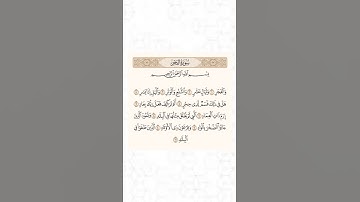 سُورَةُ الفَجْرِ
بِسْمِ ٱللَّهِ ٱلرَّحْمَٰنِ ٱلرَّحِيمِ
وَٱلْفَجْرِ ۝١ وَلَيَالٍ عَشْرٍ ۝٢ وَٱلشَّفْعِ وَٱلْوَتْرِ ۝٣ وَٱلَّيْلِ إِذَا يَسْرِ ۝٤
هَلْ فِي ذَٰلِكَ قَسَمٌ لِّذِي حِجْرٍ ۝٥ أَلَمْ تَرَ كَيْفَ فَعَلَ رَبُّكَ بِعَادٍ ۝٦
إِرَمَ ذَاتِ ٱلْعِمَادِ ۝٧ ٱلَّتِي لَمْ يُخْلَقْ مِثْلُهَا فِي ٱلْبِلَٰدِ ۝٨ وَثَمُودَ ٱلَّذِينَ
جَابُوا۟ ٱلصَّخْرَ بِٱلْوَادِ ۝٩ وَفِرْعَوْنَ ذِي ٱلْأَوْتَادِ ۝١٠ ٱلَّذِينَ طَغَوْا۟ فِي
ٱلْبِلَٰدِ ۝١١